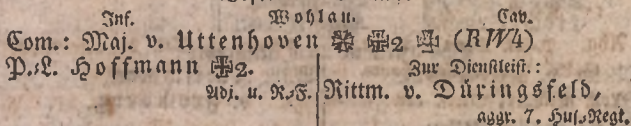 Inf. Wohlau. Cav.
Com.: Maj. v. Uttenhoven ✠ ✠2 ✠ (RW4)
P.-L. Hoffmann ✠2.
Adj. u. R.-F.
Zur Dienstleist.:
Rittm. v. Düringsfeld,
aggr. 7. Hus.-Regt.